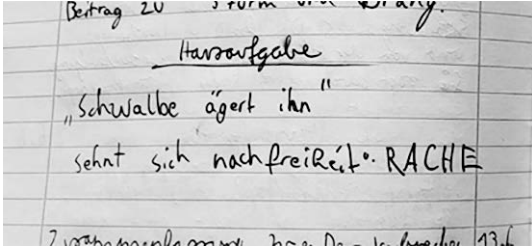 Beitrag zu Sturm und Drang.
Hausaufgabe
„Schwalbe ägert ihn"
sehnt sich nach freiheit. RACHE
Zusammenfassung